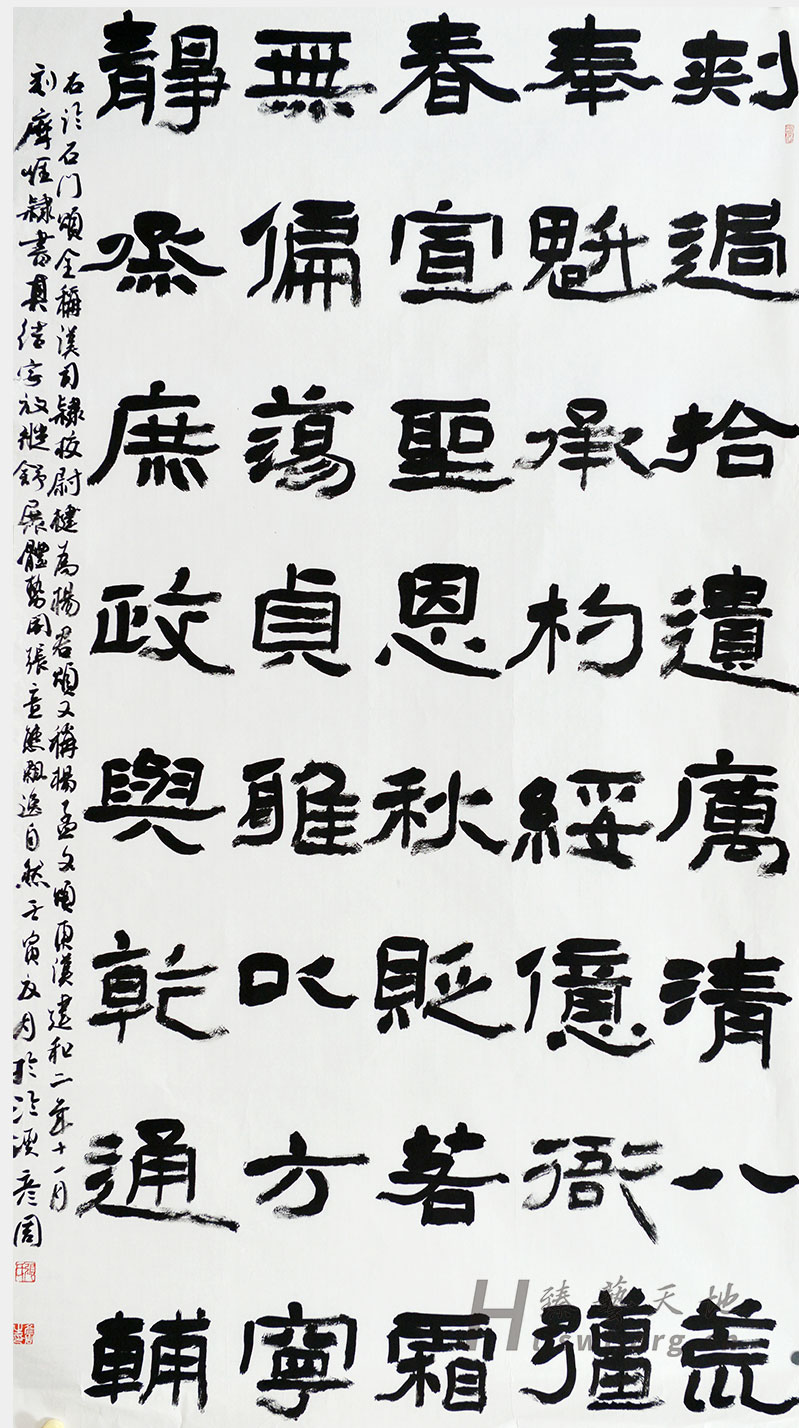 刾過拾遺厲清八荒
奉魁承杓綏億衙彊
春宣聖恩秋貶若霜
無偏蕩貞雅以方寧
靜烝庶政與乾通輔
右臨石门頌全稱漢司隸校尉楗為楊君頌又稱楊孟文頌東漢建和二年十一月
刻摩崖隸書其結字放縱舒展體勢開張意態飄逸自然壬寅
臻藝天地